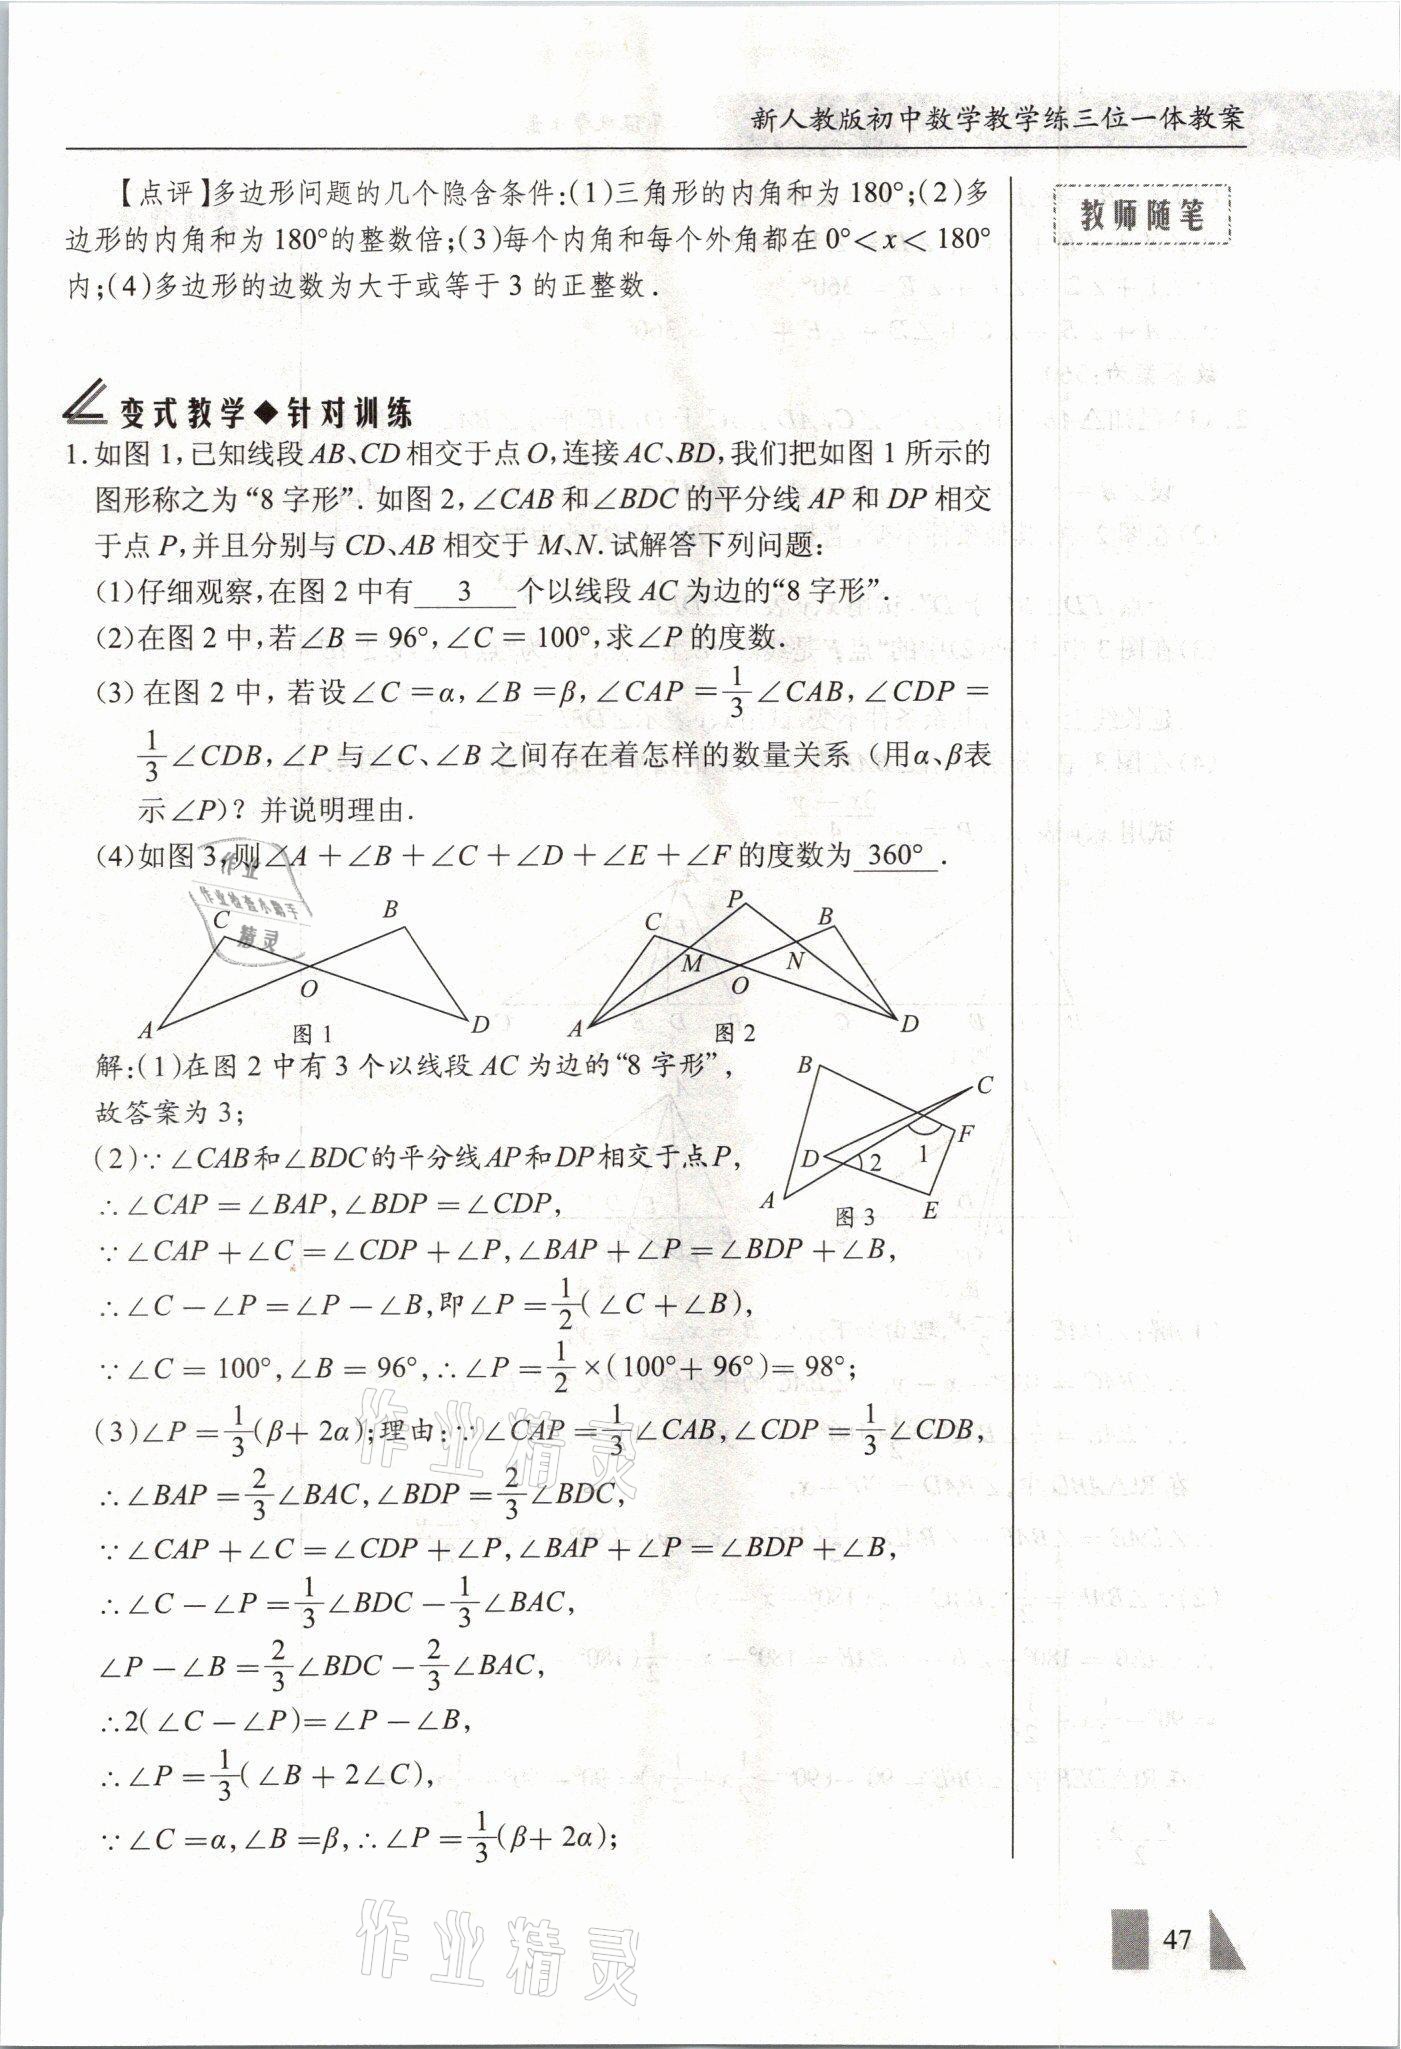 新人教版初中数学教学练三位一体教案
【点评】多边形问题的几个隐含条件:(1)三角形的内角和为180°;(2)多
边形的内角和为180°的整数倍;(3)每个内角和每个外角都在0°<x<180°
内;(4)多边形的边数为大于或等于3的正整数.
教师随笔
变式教学◆针对训练
1. 如图1,已知线段AB、CD相交于点O,连接AC、BD,我们把如图1所示的
图形称之为“8字形”. 如图2,∠CAB和∠BDC的平分线AP和DP相交
于点P,并且分别与CD、AB相交于M、N.试解答下列问题:
(1)仔细观察,在图2中有 3 个以线段AC为边的“8字形”.
(2)在图2中,若∠B=96°,∠C=100°,求∠P的度数.
(3)在图2中,若设∠C=α,∠B=β,∠CAP=1/3∠CAB,∠CDP=
1/3∠CDB,∠P与∠C、∠B之间存在着怎样的数量关系(用α、β表
示∠P)?并说明理由.
(4)如图3,则∠A+∠B+∠C+∠D+∠E+∠F的度数为 360° .
作业
作业检查小助手
精灵
C B O A D
图1
C P B M N O A D
图2
B C F D 2 1 A E
图3
解:(1)在图2中有3个以线段AC为边的“8字形”,
故答案为3;
(2)∵∠CAB和∠BDC的平分线AP和DP相交于点P,
∴∠CAP=∠BAP,∠BDP=∠CDP,
∵∠CAP+∠C=∠CDP+∠P,∠BAP+∠P=∠BDP+∠B,
∴∠C-∠P=∠P-∠B,即∠P=1/2(∠C+∠B),
∵∠C=100°,∠B=96°,∴∠P=1/2×(100°+96°)=98°;
(3)∠P=1/3(β+2α);理由:∵∠CAP=1/3∠CAB,∠CDP=1/3∠CDB,
∴∠BAP=2/3∠BAC,∠BDP=2/3∠BDC,
∵∠CAP+∠C=∠CDP+∠P,∠BAP+∠P=∠BDP+∠B,
∴∠C-∠P=1/3∠BDC-1/3∠BAC,
∠P-∠B=2/3∠BDC-2/3∠BAC,
∴2(∠C-∠P)=∠P-∠B,
∴∠P=1/3(∠B+2∠C),
∵∠C=α,∠B=β,∴∠P=1/3(β+2α);
作业精灵
作业精灵
47